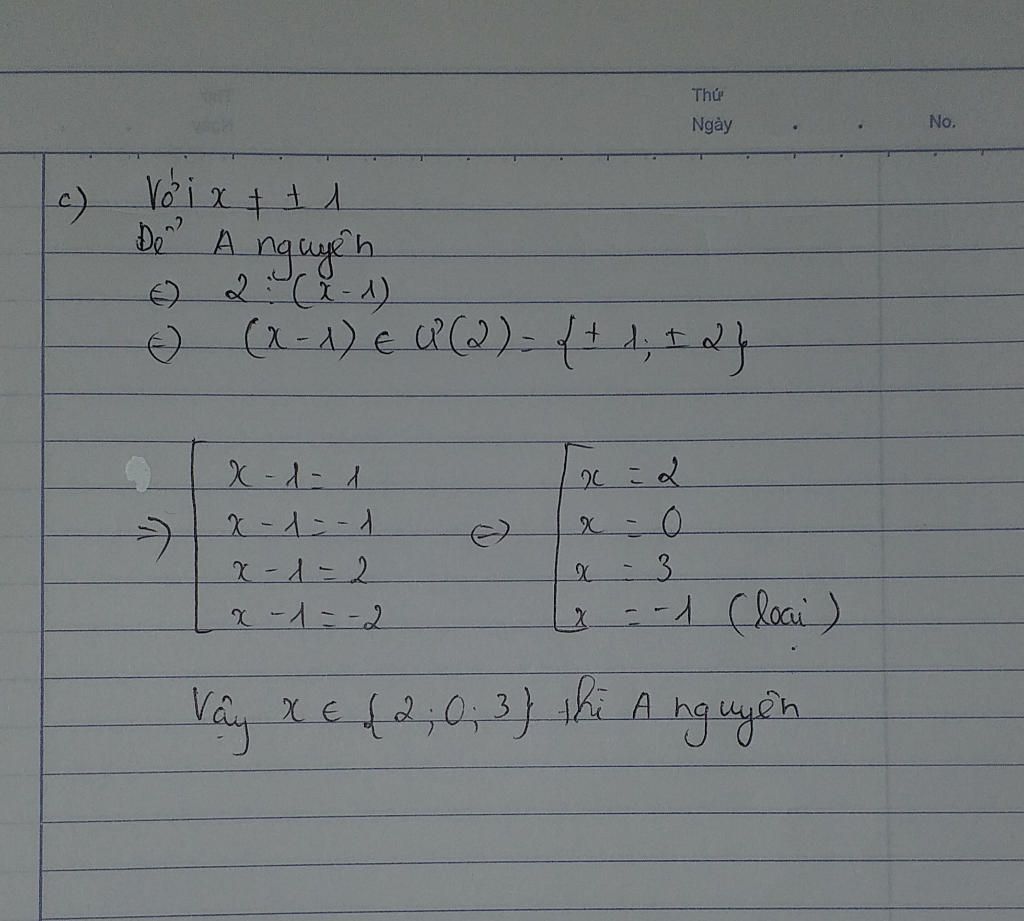 Thứ
Ngày . . No.
c) Với x ≠ ± 1
Để A nguyên
⇔ 2 ⋮ (x - 1)
⇔ (x - 1) ∈ Ư(2) = {± 1; ± 2}
⇒ [ x - 1 = 1 ⇔ [ x = 2
x - 1 = -1 x = 0
x - 1 = 2 x = 3
x - 1 = -2 x = -1 (loại)
Vậy x ∈ {2; 0; 3} thì A nguyên